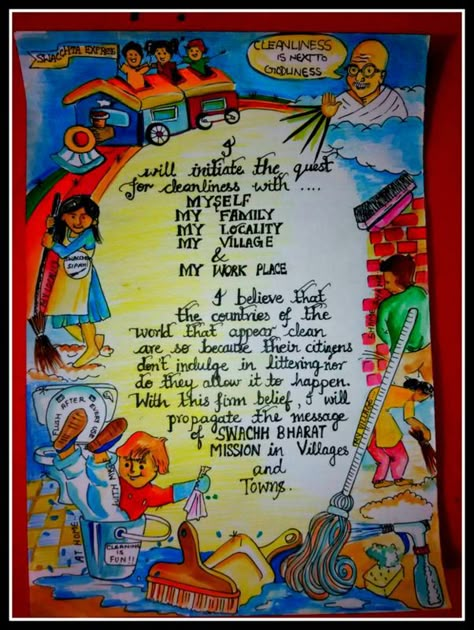 SWACCHTA EXPRESS
CLEANLINESS
IS NEXT TO
GODLINESS
I
will initiate the quest
for cleanliness with ....
MYSELF
MY FAMILY
MY LOCALITY
MY VILLAGE
&
MY WORK PLACE
I believe that
the countries of the
world that appear clean
are so because their citizens
don't indulge in littering nor
do they allow it to happen.
With this firm belief, i will
propagate the message
of SWACHH BHARAT
MISSION in Villages
and
Towns.
SWACCH
SIPAHI
FLUSH AFTER EVERY USE
WITH
AT HOME
CLEANING
IS
FUN!!